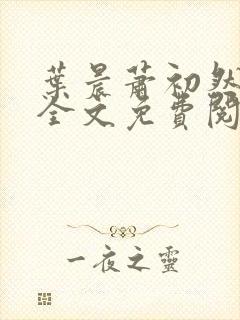 葉晨蕭初然
全文免費閱
一夜之靈